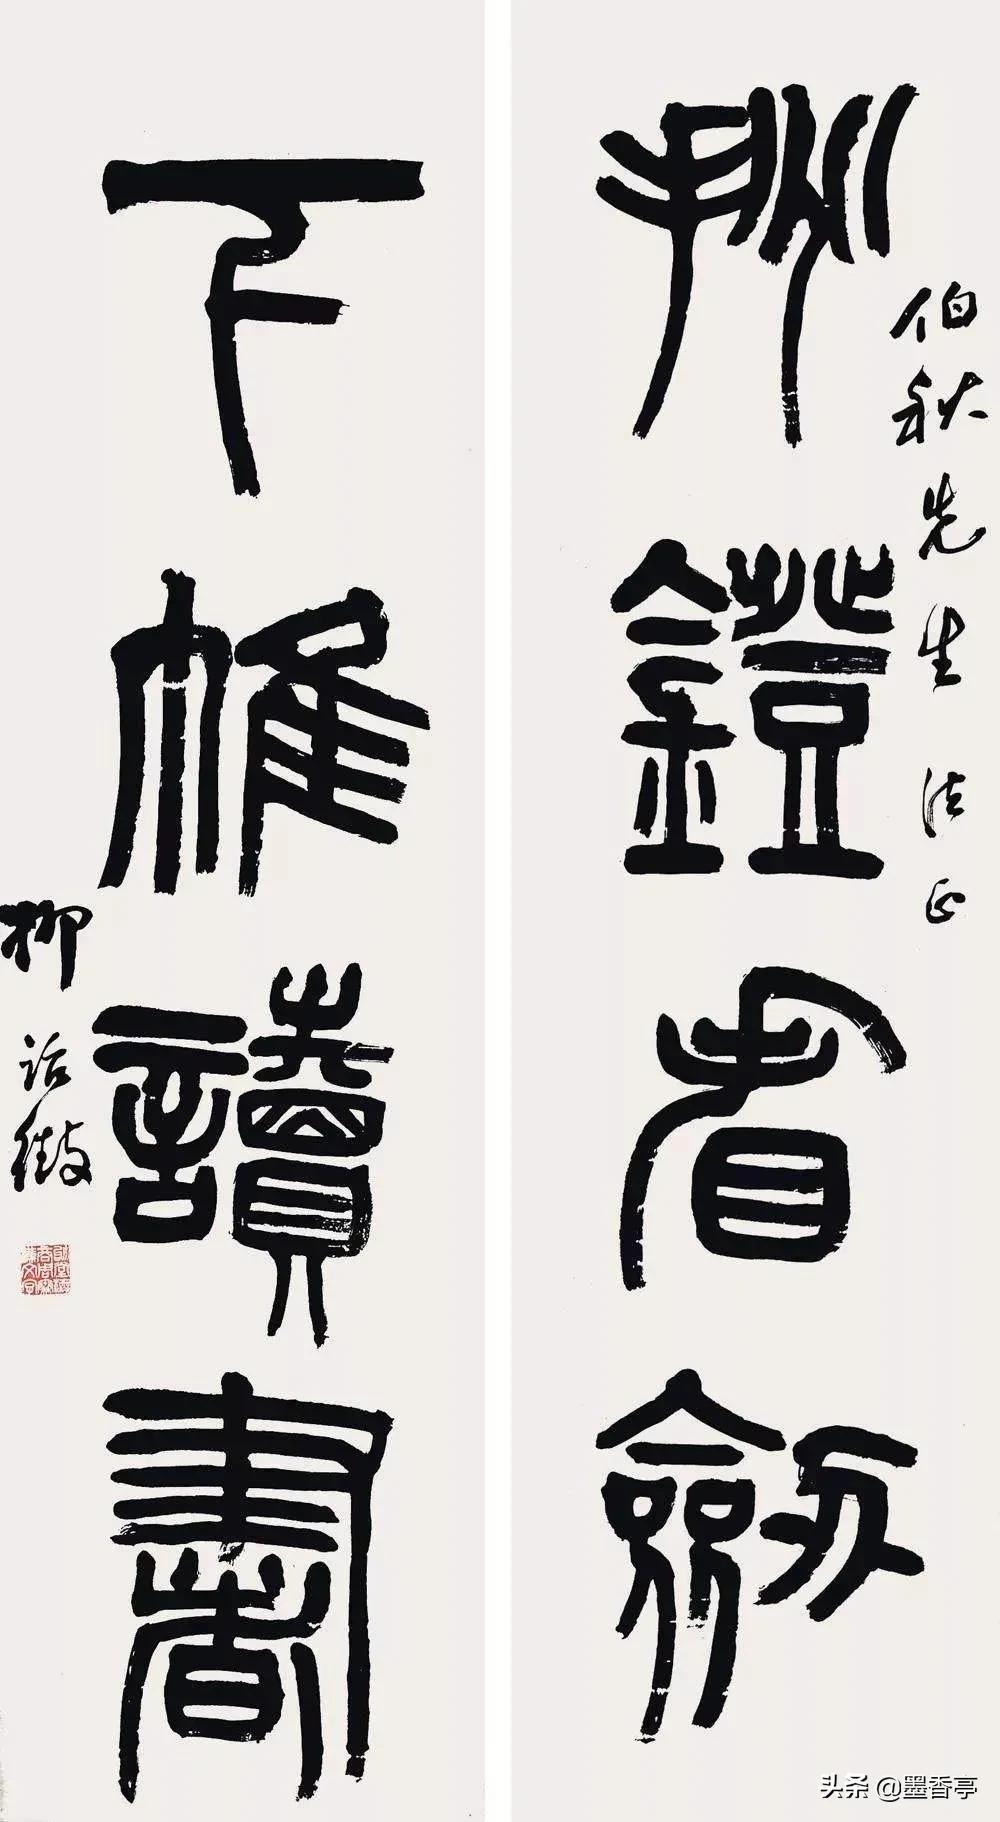 伯秋先生 法正
挑鐙看劍
下帷讀書
柳詒徵
头条 @墨香亭